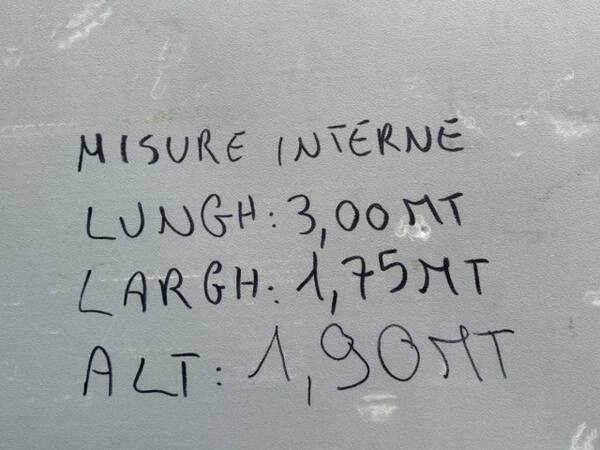 MISURE INTERNE
LUNGH: 3,00 MT
LARGH: 1,75 MT
ALT: 1,90 MT